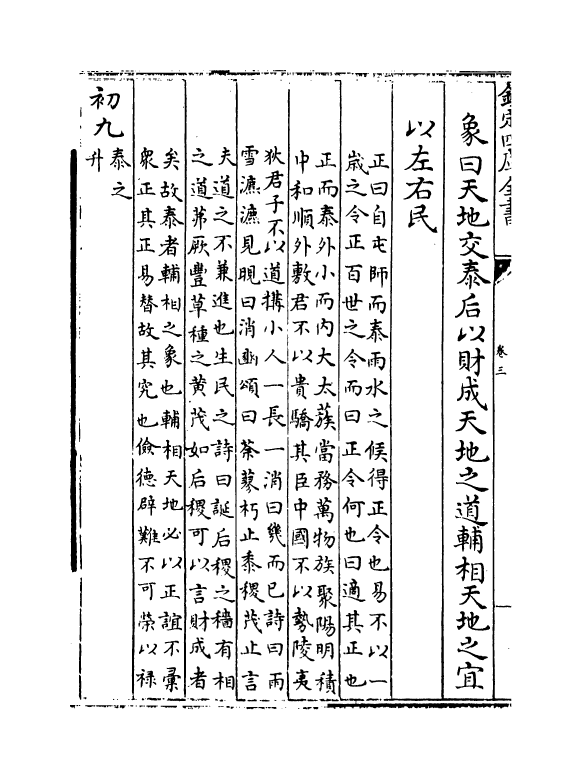 欽定四庫全書
卷三
象曰天地交泰后以財成天地之道輔相天地之宜
以左右民
正曰自屯師而泰雨水之候得正令也易不以一
歲之令正百世之令而曰正令何也曰適其正也
正而泰外小而内大太蔟當務萬物族聚陽明積
中和順外敷君不以貴驕其臣中國不以勢陵夷
狄君子不以道搆小人一長一消曰幾而已詩曰雨
雪瀌瀌見晛曰消豳頌曰荼蓼朽止黍稷茂止言
夫道之不兼進也生民之詩曰誕后稷之穡有相
之道茀厥豐草種之黄茂如后稷可以言財成者
矣故泰者輔相之象也輔相天地必以正誼不彙
衆正其正易替故其究也儉德辟難不可榮以禄
初九
泰之
升